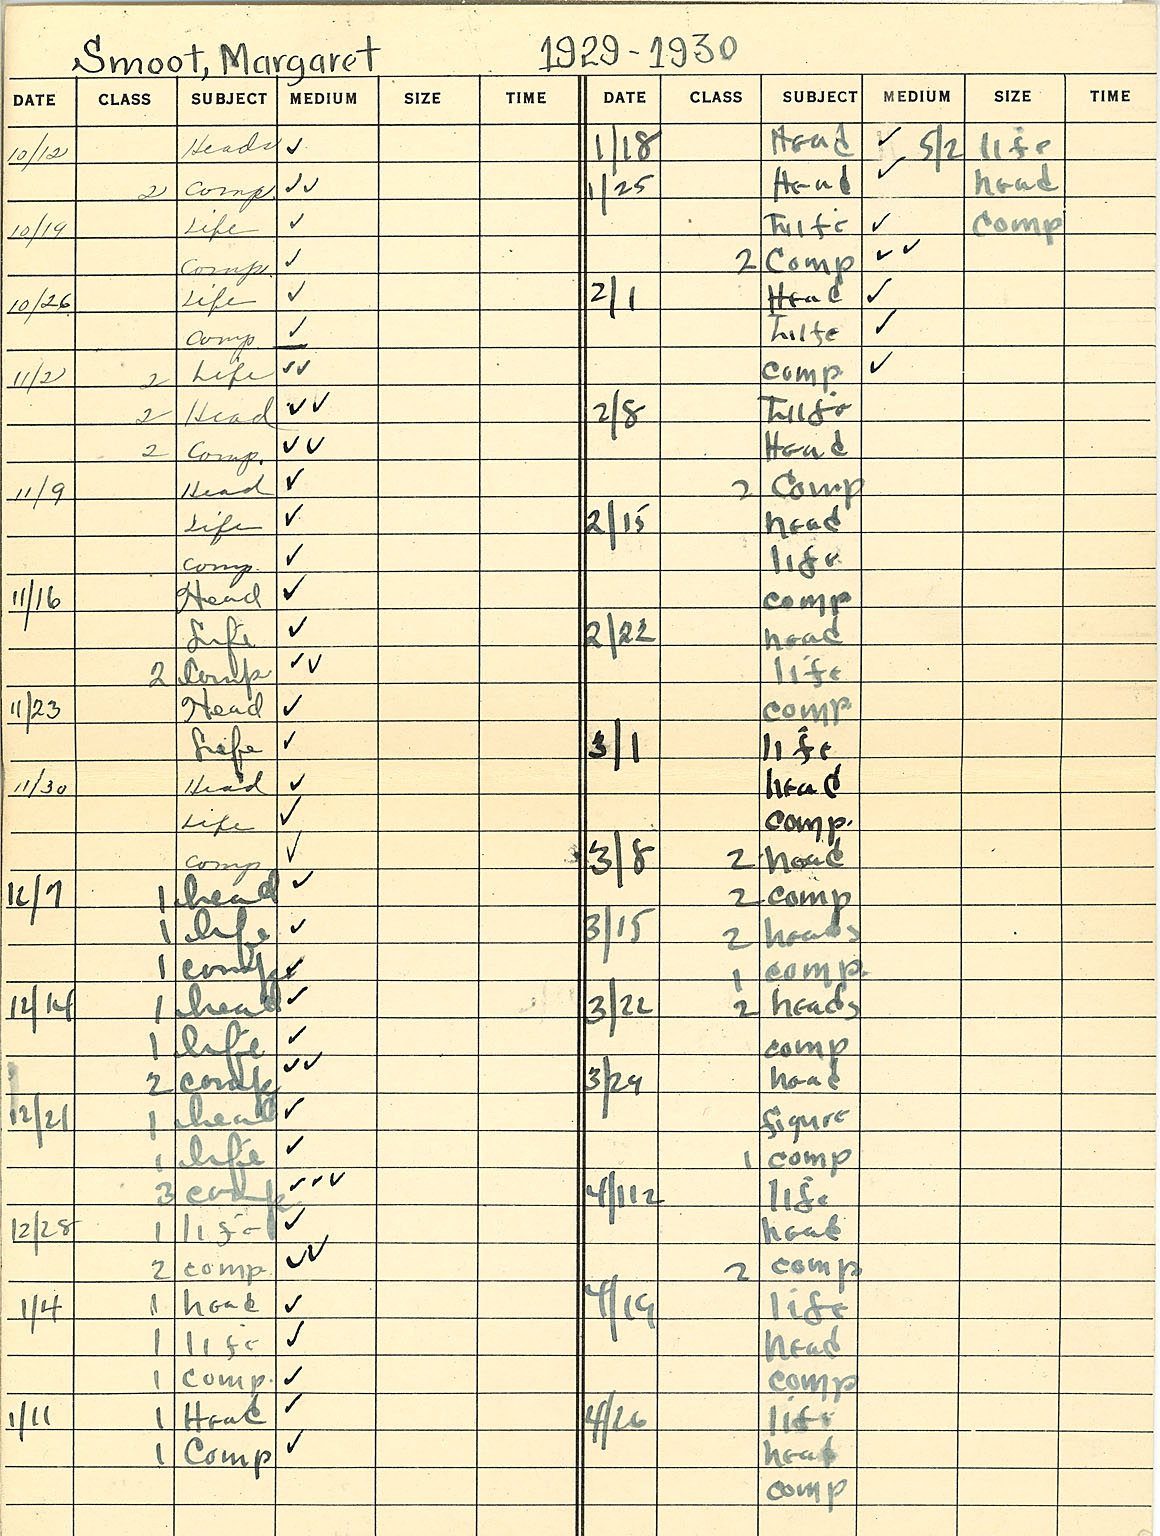 Smoot, Margaret 1929-1930
DATE CLASS SUBJECT MEDIUM SIZE TIME DATE CLASS SUBJECT MEDIUM SIZE TIME
10/12 Heads ✓
2 Comp. ✓✓
10/19 Life ✓
Comp. ✓
10/26 Life ✓
Comp. ✓
11/2 2 Life ✓✓
2 Head ✓✓
2 Comp. ✓✓
11/9 Head ✓
Life ✓
comp. ✓
11/16 Head ✓
Life ✓
2 Comp ✓✓
11/23 Head ✓
Life ✓
11/30 Head ✓
Life ✓
comp ✓
12/7 1 head ✓
1 life ✓
1 comp ✓
12/14 1 head ✓
1 life ✓
2 comp ✓✓
12/21 1 head ✓
1 life ✓
3 comp ✓✓✓
12/28 1 life ✓
2 comp. ✓✓
1/4 1 head ✓
1 life ✓
1 comp. ✓
1/11 1 Head ✓
1 Comp ✓
1/18 Head ✓ 5/2 life
1/25 Head ✓ head
Life ✓ comp
2 Comp ✓✓
2/1 Head ✓
Life ✓
comp ✓
2/8 Life
Head
2 Comp
2/15 head
life
comp
2/22 head
life
comp
3/1 life
head
comp.
3/8 2 head
2 comp
3/15 2 heads
1 comp.
3/22 2 heads
comp
3/29 head
figure
1 comp
4/12 life
head
2 comp
4/19 life
head
comp
4/26 life
head
comp